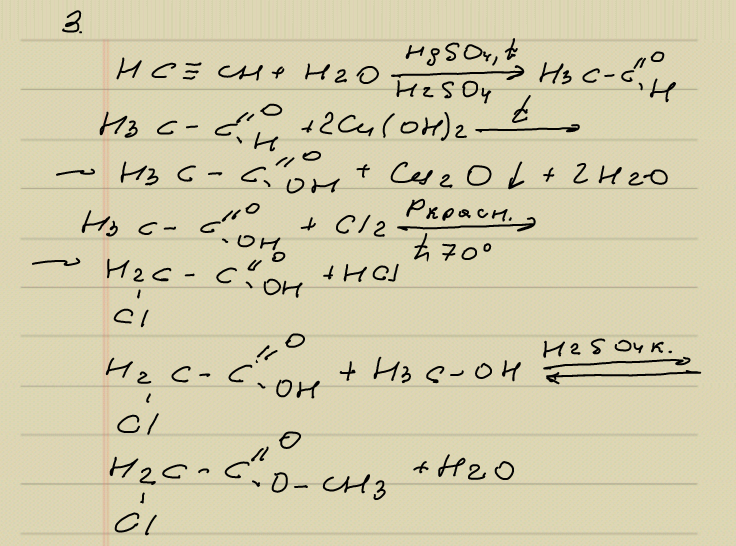 3.
HC≡CH + H2O HgSO4, t H2SO4 → H3C-C=O H
H3C-C=O H + 2Cu(OH)2 t →
→ H3C-C=O OH + Cu2O↓ + 2H2O
H3C-C=O OH + Cl2 Pкрасн. t 70° →
→ H2C-C=O OH + HCl
Cl
H2C-C=O OH + H3C-OH H2SO4к. ⇄
Cl
H2C-C=O O-CH3 + H2O
Cl